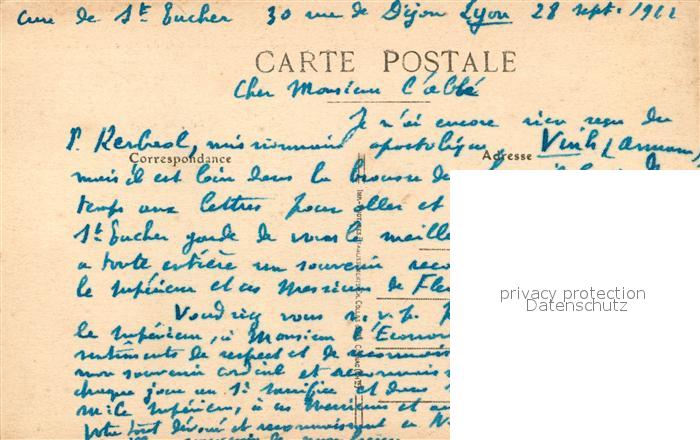 Cure de St Eucher 30 rue de Dijon Lyon 28 sept. 1912
CARTE POSTALE
Cher Monsieur l'abbé
Je n'ai encore rien reçu du
P. Kerbaol, missionnaire apostolique, Vinh (Annam)
Correspondance Adresse
mais il est loin dans la brousse
temps aux lettres pour aller et
St Eucher garde de vous le meille
a toute entière un souvenir reco
le Supérieur et ces Messieurs de
Voudriez vous s.v.p.
le Supérieur, à Monsieur l'Econo
sentiments de respect et de reconnais
mon souvenir cordial et reconnais
chaque jour au St Sacrifice et dans
Mr le Supérieur, à ces Messieurs et au
Votre tout dévoué et reconnaissant en N
privacy protection
Datenschutz